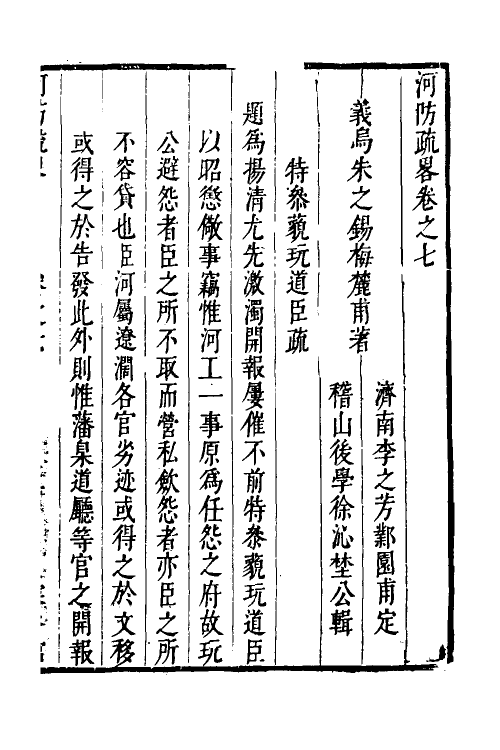 河防疏畧卷之七
義烏朱之錫梅麓甫著
濟南李之芳鄴園甫定
稽山後學徐沁埜公輯
特叅藐玩道臣疏
題爲楊清尤先激濁開報屢催不前特叅藐玩道臣
以昭懲儆事竊惟河工一事原爲任怨之府故玩
公避怨者臣之所不取而營私歛怨者亦臣之所
不容貸也臣河屬遼濶各官劣迹或得之於文移
或得之於告發此外則惟藩臬道廳等官之開報